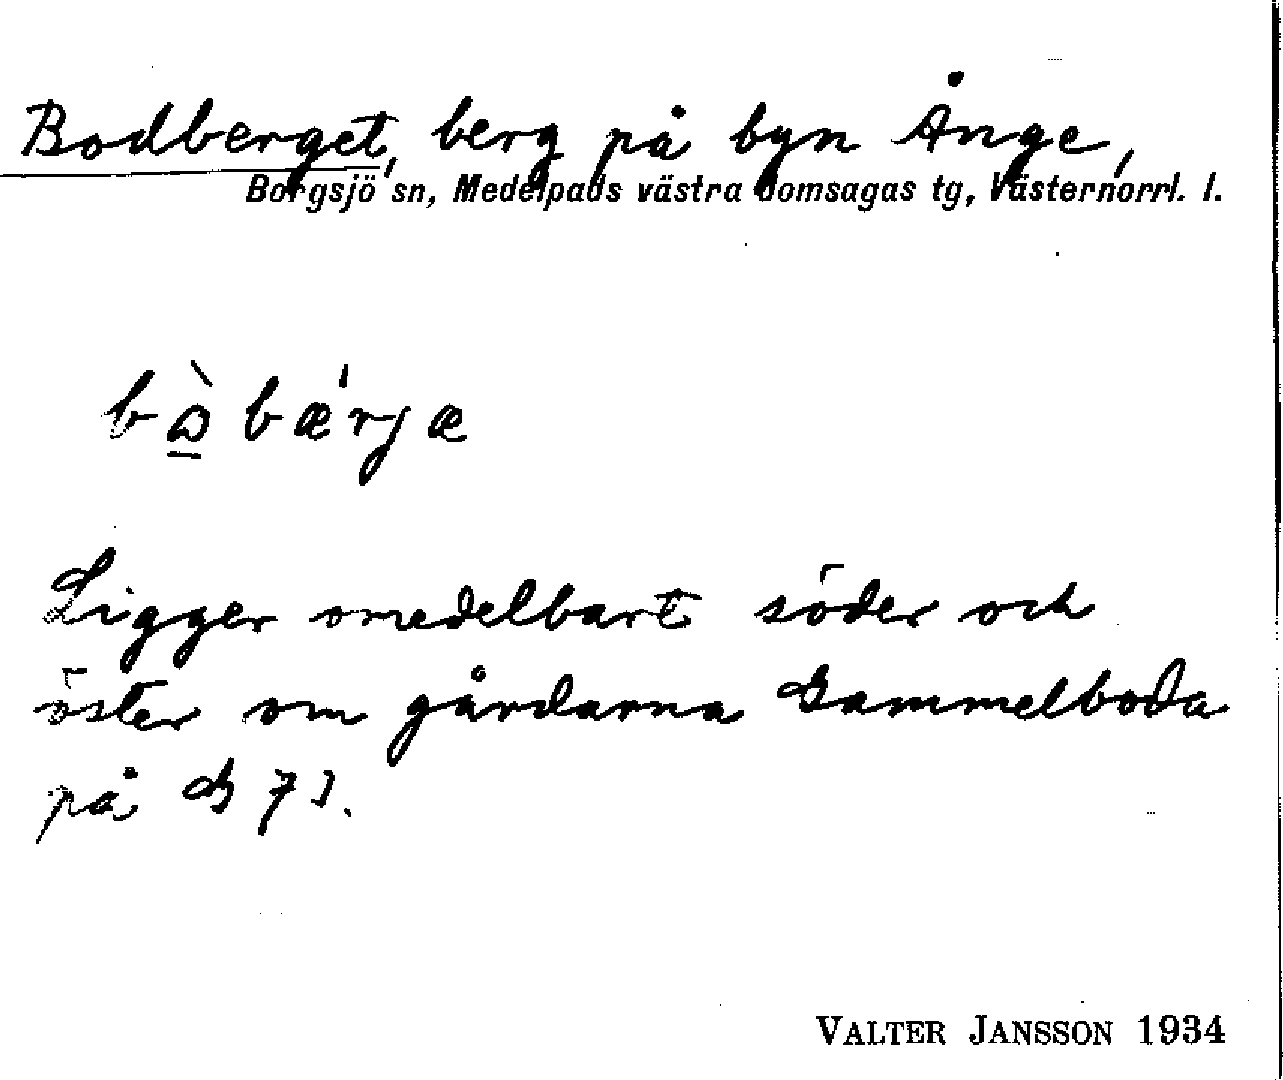 Bodberget, berg på byn Ånge,
Borgsjö sn, Medelpads västra domsagas tg, Västernorrl. l.
Ligger omedelbart söder och
öster om gårdarna Gammelboda
på
VALTER JANSSON 1934